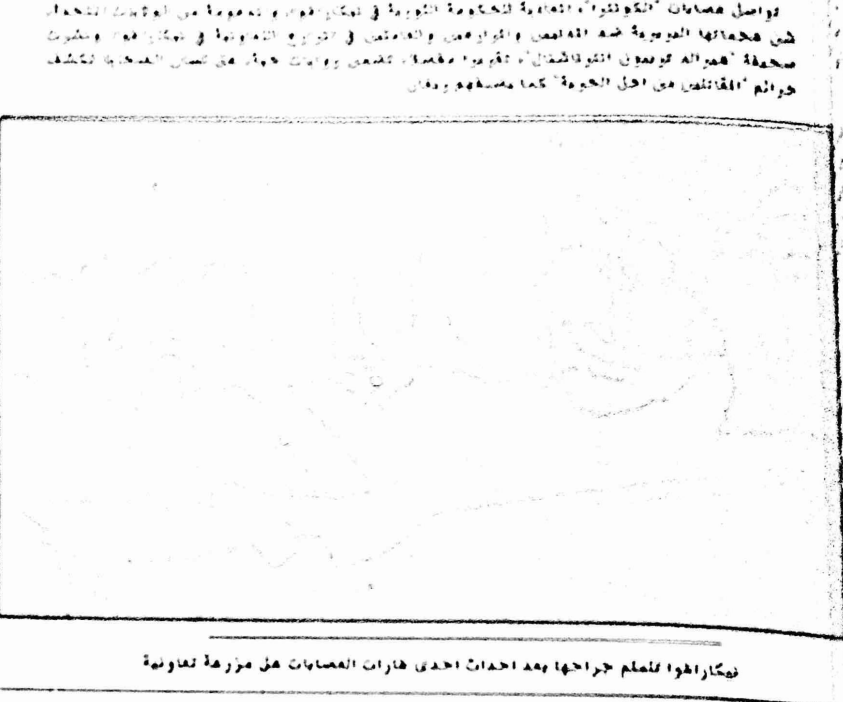 تواصل عصابات "الكونترا"، المعادية للحكومة الثورية في نيكاراغوا، والمدعومة من الولايات المتحدة،
شن هجماتها البربرية ضد المدنيين والمزارعين والعاملين في المزارع التعاونية في نيكاراغوا. ونشرت
صحيفة "هيرالد تريبيون انترناشنال"، تقريرا مفصلا، تضمن روايات حية، على لسان الضحايا تكشف
جرائم "المقاتلين من اجل الحرية" كما يصفهم ريغان
نيكاراغوا تلملم جراحها بعد احداث احدى غارات العصابات على مزرعة تعاونية